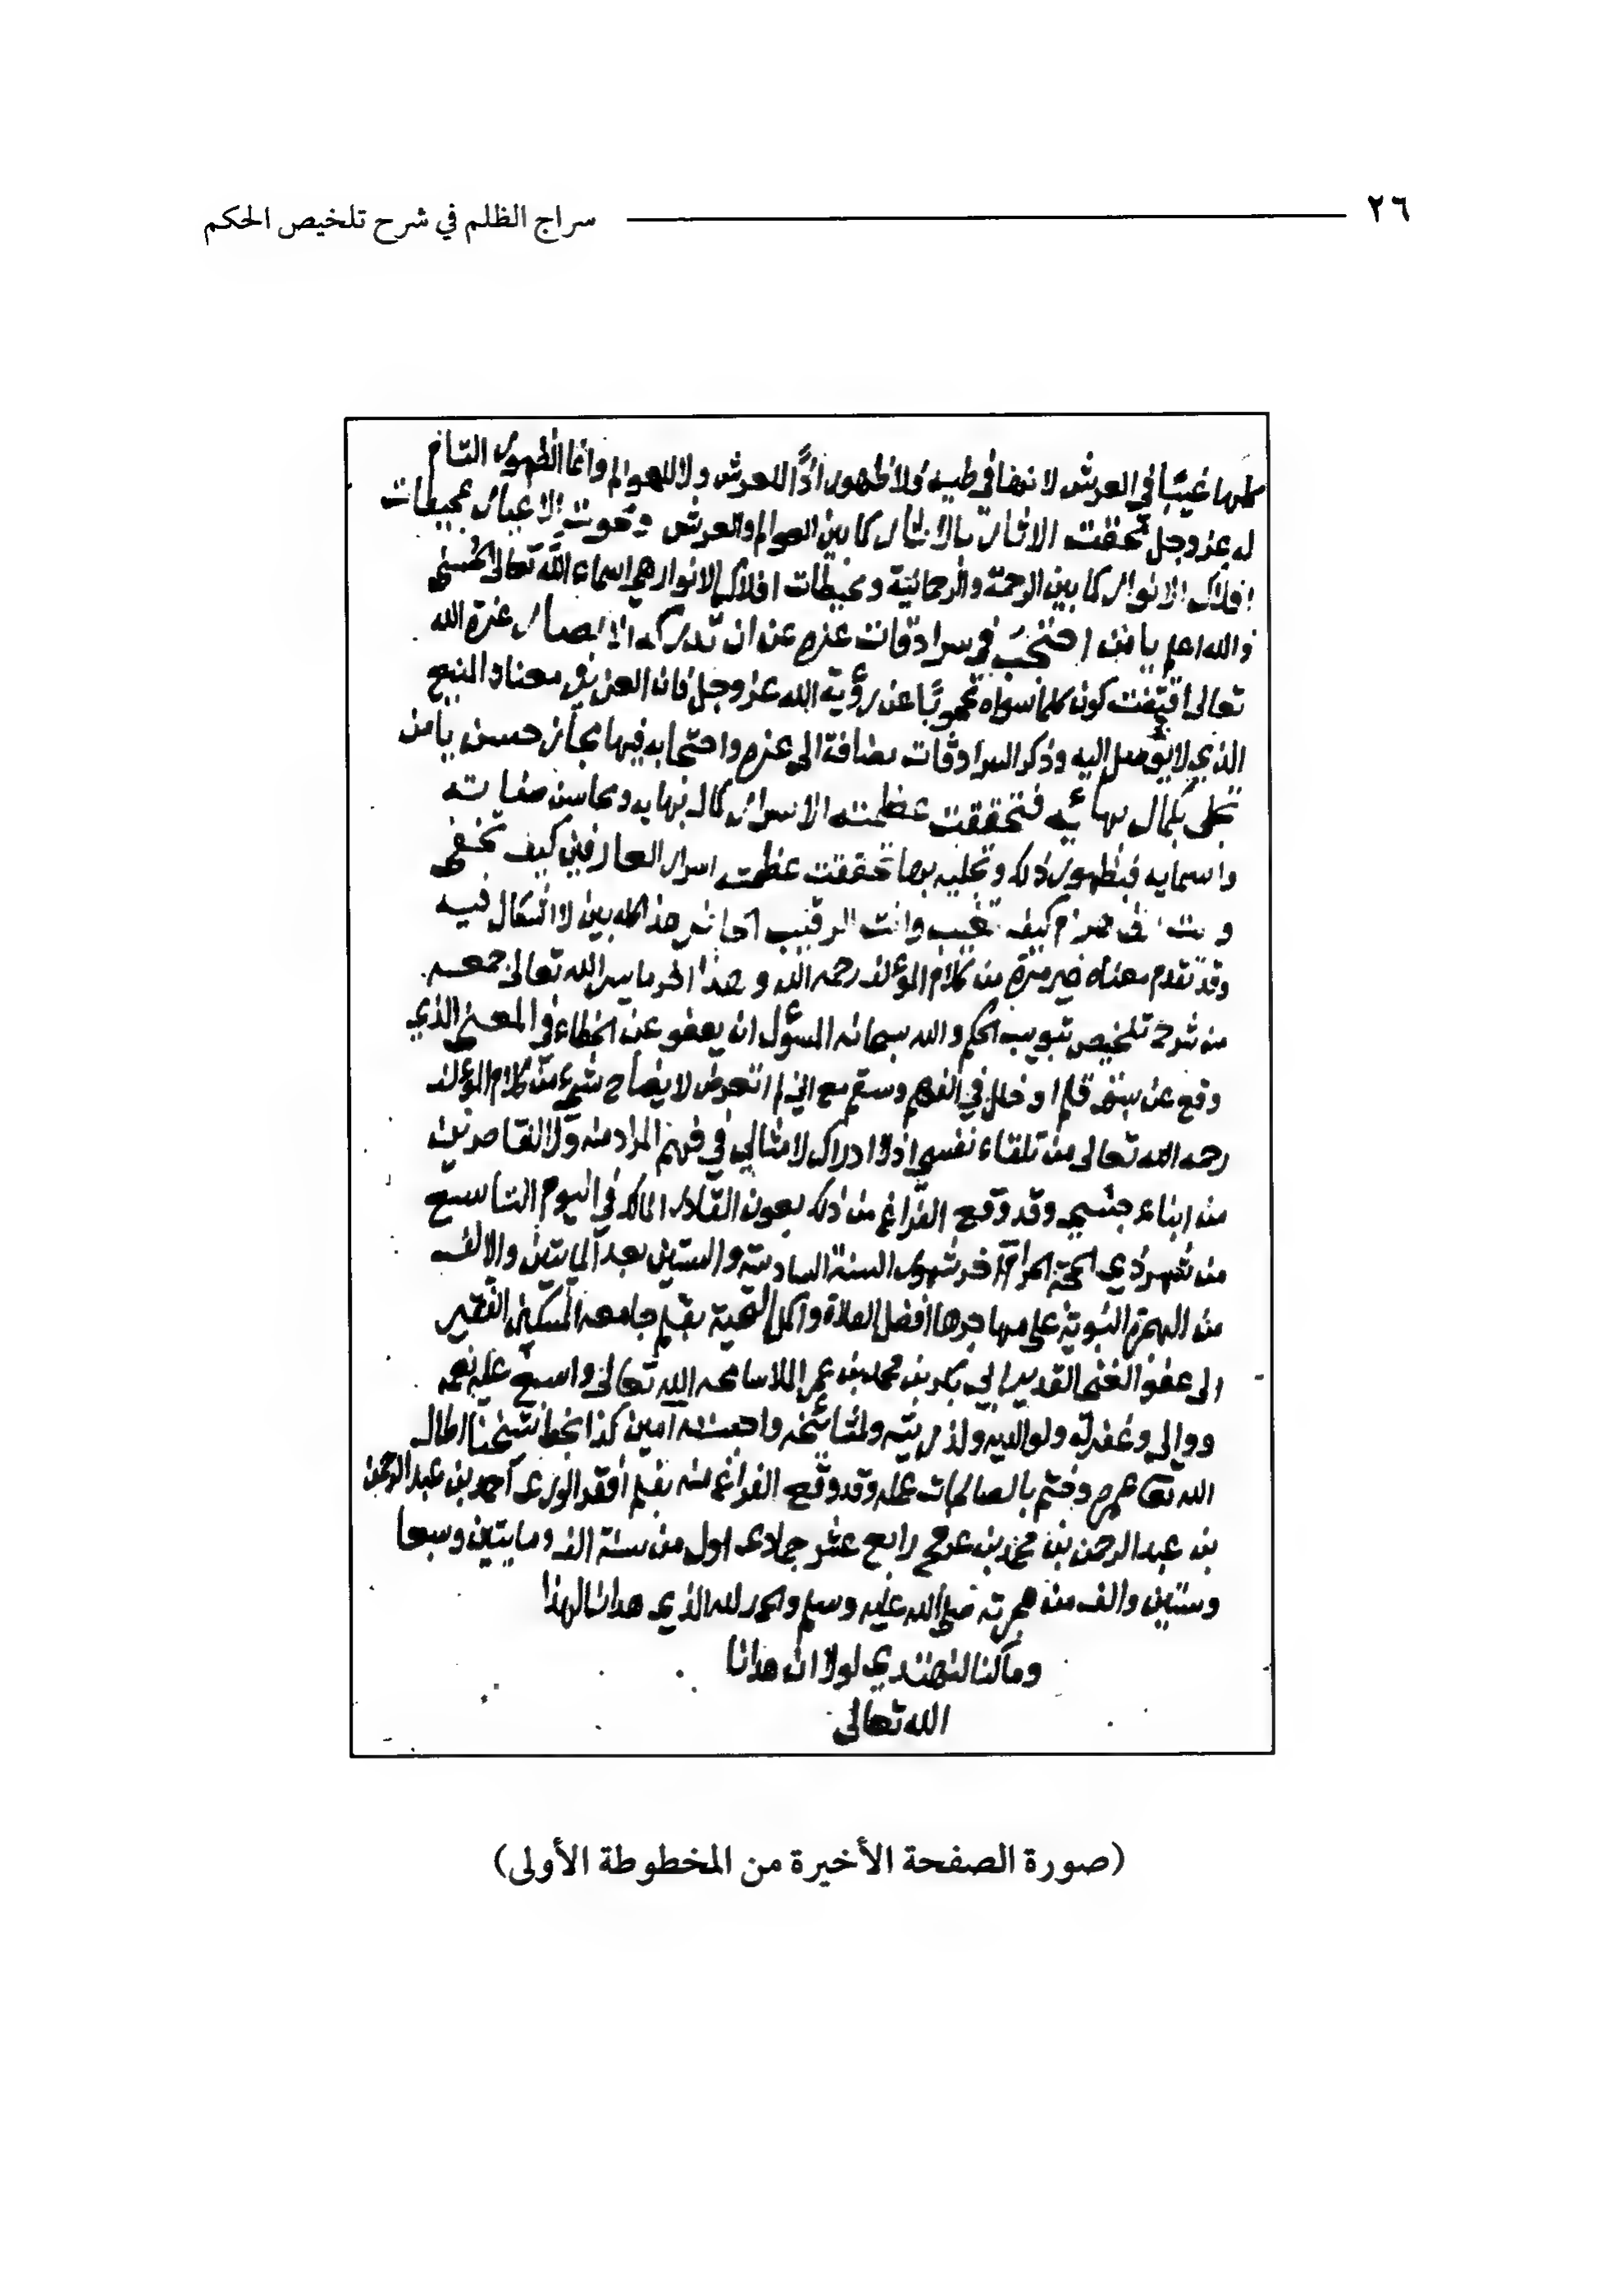 ٢٦ سراج الظلم في شرح تلخيص الحكم
كلها غيبًا في العرش لانها في طيه فلا ظهور اذًا للعرش ولا للعوالم وانما الظهور التام
له عز وجل محقت الاثار بالاثار كما بين العوالم والعرش ومحوت الاغيار بمحيطات
افلاك الانوار كما بين الرحمة والرحمانية ومحيطات افلاك الانوار هي اسماء الله تعالى الحسنى
والله اعلم يا من احتجب في سرادقات عزه عن ان تدركه الابصار عزة الله
تعالى اقتضت كون كلما سواه محجوبًا عن رؤية الله عز وجل فان العزيز معناه المنيع
الذي لا يوصل اليه وذكر السرادقات مضافة الى عزه واحتجابه فيها مجاز حسن يا من
تجلى بكمال بهائه فتحققت عظمته الاسرار كمال بهايه ومحاسن صفاته
واسمايه فبظهور ذلك وتجليه بها تحققت عظمته اسرار العارفين كيف تخفى
وانت الظاهر ام كيف تغيب وانت الرقيب الحاضر هذا كله بين لا اشكال فيه
وقد تقدم معناه غير مرة من كلام المؤلف رحمه الله وهذا اخر ما يسر الله تعالى جمعه
من شرح تلخيص تبويب الحكم والله سبحانه المسؤل ان يعفو عن الخطاء في المعنى الذي
وقع عن سبق قلم او خلل في الفهم وسقم مع اني لم اتعرض لايضاح شيء من كلام المؤلف
رحمه الله تعالى من تلقاء نفسي اذ لا ادراك لامثالي في فهم المراد منه ولا القاصرين
من ابناء جنسي وقد وقع الفراغ من ذلك بعون القادر المالك في اليوم التاسع
من شهر ذي الحجة الحرام آخر شهور السنة السادسة والستين بعد المايتين والالف
من الهجرة النبوية على مهاجرها افضل الصلاة واكمل التحية بقلم جامعه المسكين الفقير
الى عفو الغني القدير ابي بكر بن محمد بن عمر الملا سامحه الله تعالى واسبغ عليه نعمه
ووالى وغفر له ولوالديه ولذريته ولمشائخه واحبته آمين كذا بخط شيخنا اطال
الله تعالى عمره وختم بالصالحات عمله وقد وقع الفراغ منه بقلم أفقر الورى احمد بن عبد الرحمن
بن عبد الرحمن بن محمد بن رابع عشر جمادى اول من سنة الف ومايتين وسبعا
وستين والف من هجرته صلى الله عليه وسلم والحمد لله الذي هدانا لهذا
وما كنا لنهتدي لولا ان هدانا
الله تعالى
(صورة الصفحة الأخيرة من المخطوطة الأولى)